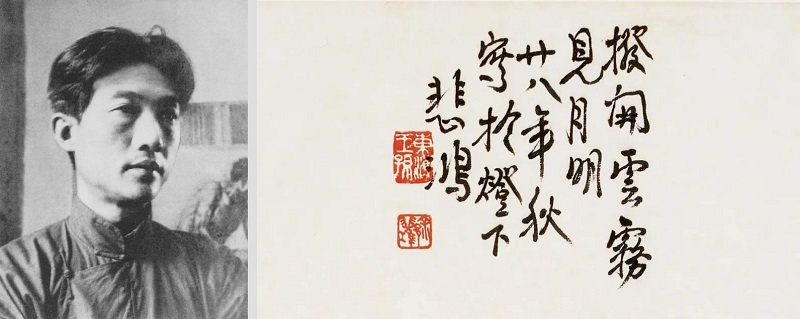 撥開雲霧
見月明
廿八年秋
寫於燈下
悲鴻
東海王孫